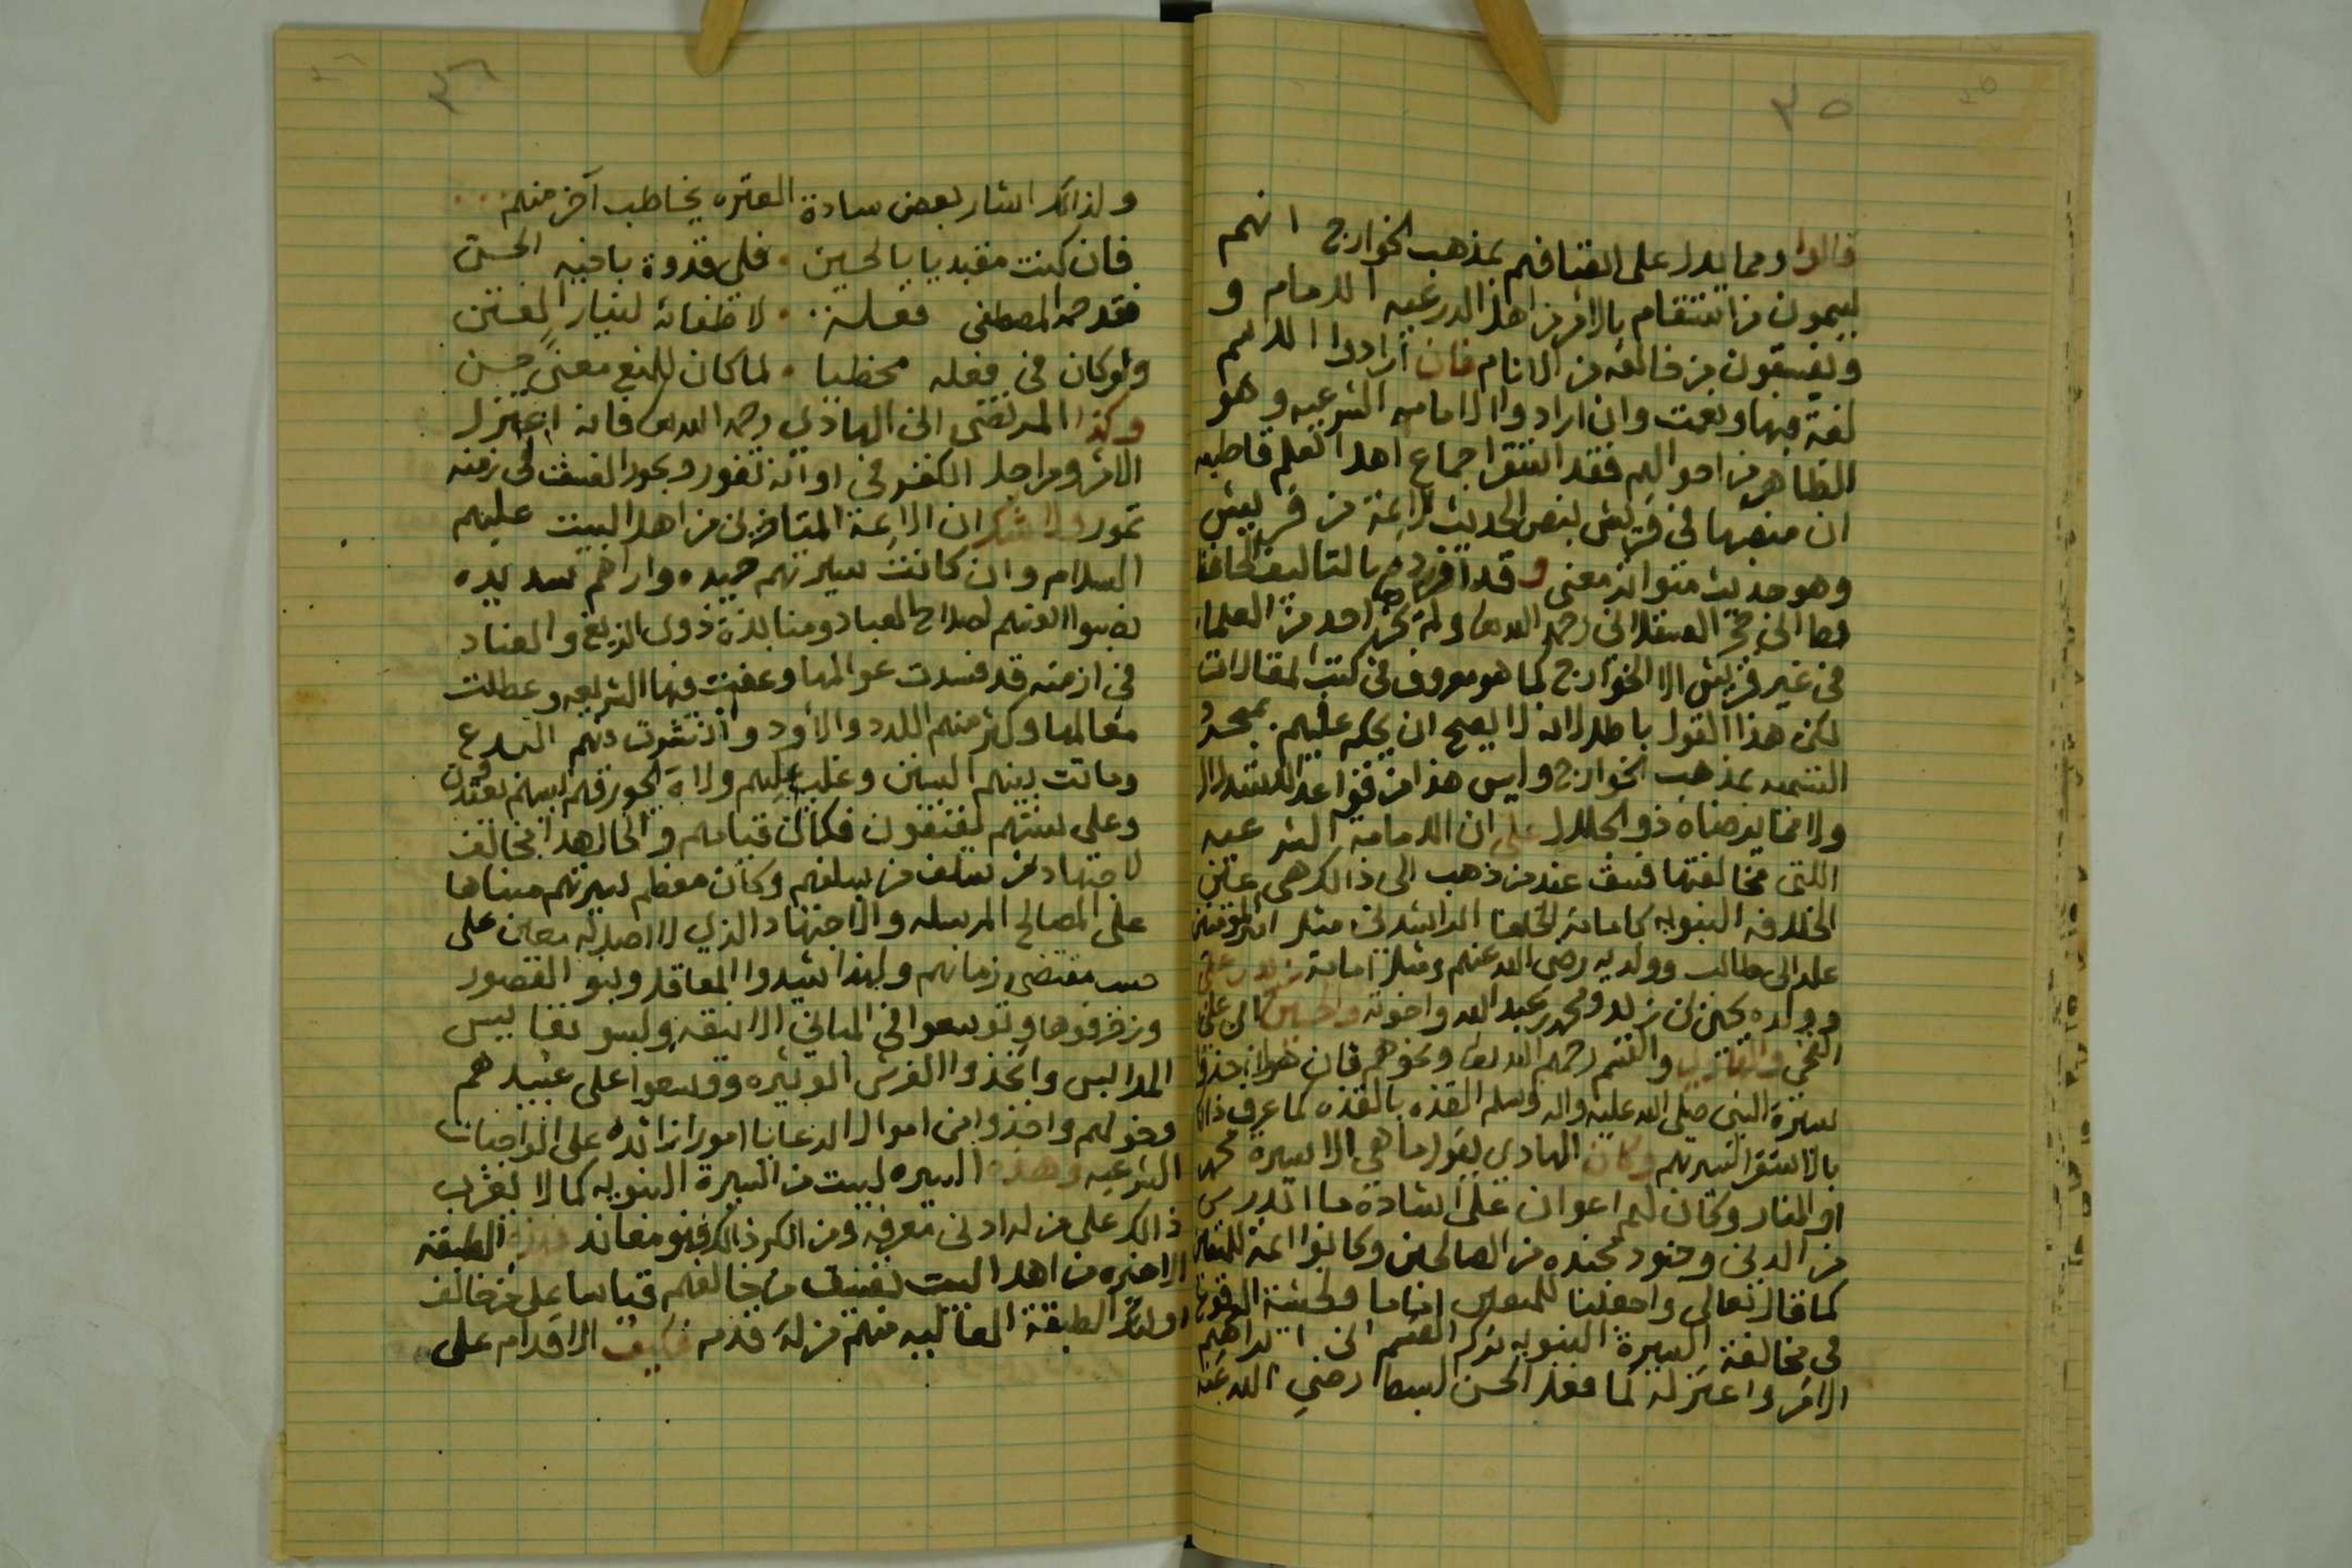 ٣٥
قالوا ومما يدل على اتصافهم بمذهب الخوارج انهم
يسمون من استقام بالامر من اهل الدرعيه الامام و
ويفسقون من خالفه من الانام فان أرادوا الاسم
لغة فبها ونعمت وان ارادوا الامامه الشرعيه وهو
الظاهر من احوالهم فقد استقر اجماع اهل العلم قاطبه
ان منصبها في قريش بنص الحديث الائمة من قريش
وهو حديث متواتر معنى وقد أفرده بالتاليف الحافظ
ابن حجر العسقلاني رحمه الله ولم يجز احد من العلماء
في غير قريش الا الخوارج كما هو معروف في كتب المقالات
لكن هذا القول باطل لانه لا يصح ان يحكم عليهم بمجرد
التسميه بمذهب الخوارج وليس هذا من قواعد الاستدلال
ولا مما يرضاه ذو الجلال على ان الامامة الشرعيه
اللتي مخالفتها فسق عند من ذهب الى ذالك هي عين
الخلافه النبويه كامامة الخلفا الراشدين مثل امير المؤمنين
علي ابن ابي طالب وولديه رضي الله عنهم ومثل امامة زيد بن علي
وولده يحيى بن زيد ومحمد بن عبد الله واخوته والحسين ابن علي
الفخي والقاسم رحمهم الله ونحوهم فان هولاء حذو
بسيرة النبي صلى الله عليه واله وسلم القذه بالقذه كما عرف ذالك
بالاستقرا لسيرتهم وكان الهادي يقول ما هي الا سيرة محمد
او النار وكان لهم اعوان على اشادة ما اندرس
من الدين وجنود مجنده من الصالحين وكانوا ائمة للمتقين
كما قال تعالى واجعلنا للمتقين اماما ولخشية الوقوع
في مخالفة السيرة النبويه ترك القسم ابن ابراهيم
الامر واعتزله كما فعل الحسن السبط رضي الله عنه
٣٦
ولذالك اشار بعض سادة العتره يخاطب آخر منهم
فان كنت مقتديا بالحسين • فلي قدوة باخيه الحسن
فقد حمد المصطفى فعله • لاطفائه لنار الفتن
ولو كان في فعله مخطيا • لما كان للمدح معنى حسن
وكذا المرتضى ابن الهادي رحمه الله فانه اعتزل
الامر ومراجل الكفر في اوانه تفور وبحور الفسق في زمنه
تمور ولا شك ان الائمة المتاخرين من اهل البيت عليهم
السلام وان كانت سيرتهم حميده واراهم سديده
نصبوا انفسهم لصلاح العباد ومنابذة ذوي الزيغ والعناد
في ازمنه قد فسدت عوالمها وعفيت فيها الشريعه وعطلت
معالمها وكثر منهم اللدد والاود وانتشرت منهم البدع
وماتت بينهم السنن وغلب عليهم ولاة الجور فهم بسيرتهم يقتدون
وعلى سنتهم يقتفون فكان قيامهم والحال هذا مخالف
لاجتهاد من سلف من سلفهم وكان معظم سيرتهم مبناها
على المصالح المرسله والاجتهاد الذي لا اصل له معين على
حسب مقتضى زمانهم ولهذا شيدوا المعاقل وبنو القصور
وزخرفوها وتوسعوا في المباني الانيقه ولبسو نفايس
الملابس واتخذوا الفرش الوثيره ووسعوا على عبيدهم
وخولهم واخذوا من اموال الرعايا امورا زائده على الواجبات
الشرعيه وهذه السيره ليست من السيرة النبويه كما لا يعزب
ذالك على من له ادنى معرفه ومن انكر ذالك فهو معاند فهذه الطبقة
الاخيره من اهل البيت تفسيق من خالفهم قياسا على من خالف
اولئك الطبقة العاليه منهم مزلة قدم فكيف الاقدام على